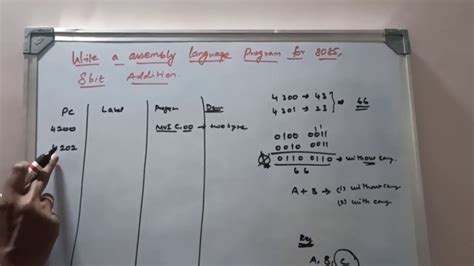 Write a assembly language Program for 8085,
8bit Addition
PC Label Program
4200 MVI C,00 → two byte
4202
4300 → 43
4301 → 23 ⇒ 66
0100 0011
0010 0011
0110 0110 → without cary.
6 6
A + B → (1) without cary
(2) with cary
A, B, C